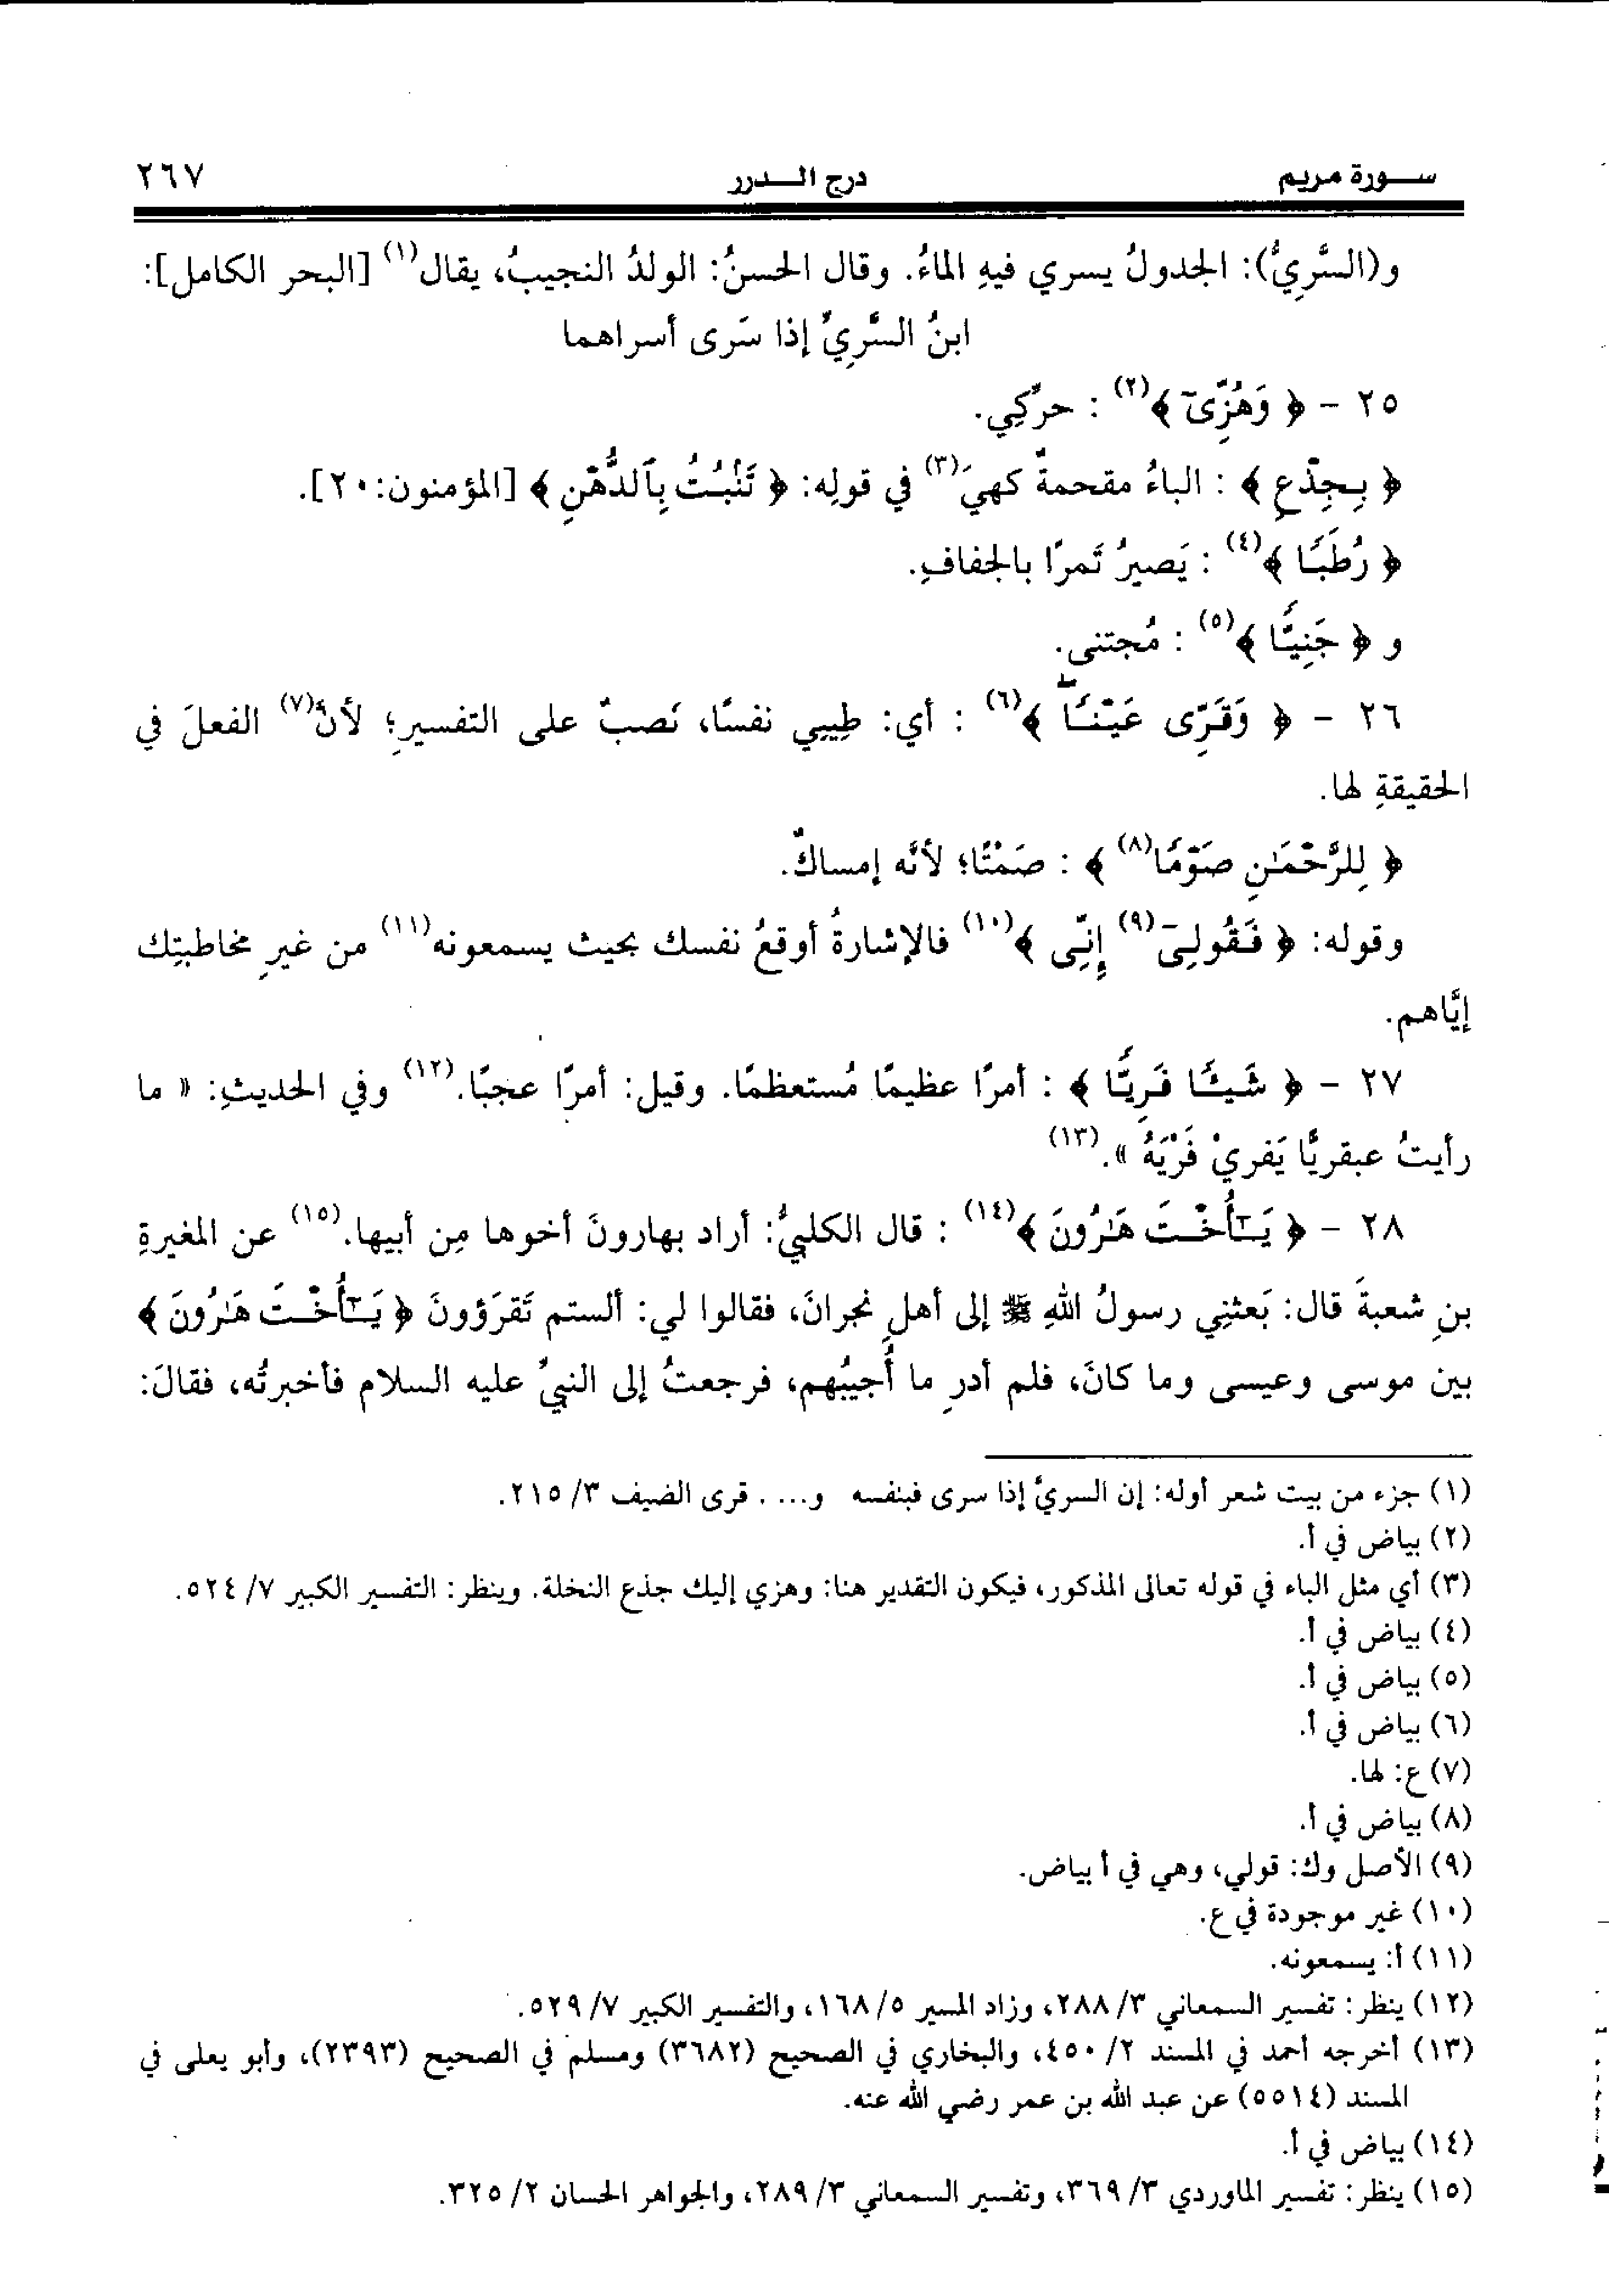 سورة مريم درج الدرر ٢٦٧
و(السَّرِيُّ): الجدولُ يسري فيهِ الماءُ. وقال الحسنُ: الولدُ النجيبُ، يقال(١) [البحر الكامل]:
ابنُ السَّرِيِّ إذا سَرى أسراهما
٢٥ - ﴿ وَهُزِّىٓ ﴾(٢) : حرِّكِي.
﴿ بِجِذْعِ ﴾ : الباءُ مقحمةٌ كهيَ(٣) في قولِه: ﴿ تَنۢبُتُ بِٱلدُّهْنِ ﴾ [المؤمنون: ٢٠].
﴿ رُطَبًا ﴾(٤) : يَصيرُ تَمرًا بالجفافِ.
و ﴿ جَنِيًّا ﴾(٥) : مُجتنى.
٢٦ - ﴿ وَقَرِّى عَيْنًا ۖ ﴾(٦) : أي: طِيبِي نفسًا، نَصبٌ على التفسيرِ؛ لأنَّ(٧) الفعلَ في
الحقيقةِ لها.
﴿ لِلرَّحْمَٰنِ صَوْمًا(٨) ﴾ : صَمْتًا؛ لأنَّه إمساكٌ.
وقوله: ﴿ فَقُولِىٓ(٩) إِنِّى ﴾(١٠) فالإشارةُ أوقعُ نفسك بحيث يسمعونه(١١) من غيرِ مخاطبتِك
إيَّاهم.
٢٧ - ﴿ شَيْـًٔا فَرِيًّا ﴾ : أمرًا عظيمًا مُستعظمًا. وقيل: أمرًا عجبًا.(١٢) وفي الحديثِ: « ما
رأيتُ عبقريًّا يَفريْ فَرْيَهُ ».(١٣)
٢٨ - ﴿ يَـٰٓأُخْتَ هَـٰرُونَ ﴾(١٤) : قال الكلبيُّ: أراد بهارونَ أخوها مِن أبيها.(١٥) عن المغيرةِ
بنِ شعبةَ قال: بَعثنِي رسولُ اللهِ ﷺ إلى أهلِ نجرانَ، فقالوا لي: ألستم تَقرَؤونَ ﴿ يَـٰٓأُخْتَ هَـٰرُونَ ﴾
بين موسى وعيسى وما كانَ، فلم أدرِ ما أُجيبُهم، فرجعتُ إلى النبيِّ عليه السلام فأخبرتُه، فقالَ:
(١) جزء من بيت شعر أوله: إن السريَّ إذا سرى فبنفسه و... . قرى الضيف ٣/ ٢١٥.
(٢) بياض في أ.
(٣) أي مثل الباء في قوله تعالى المذكور، فيكون التقدير هنا: وهزي إليك جذع النخلة. وينظر: التفسير الكبير ٧/ ٥٢٤.
(٤) بياض في أ.
(٥) بياض في أ.
(٦) بياض في أ.
(٧) ع: لها.
(٨) بياض في أ.
(٩) الأصل وك: قولي، وهي في أ بياض.
(١٠) غير موجودة في ع.
(١١) أ: يسمعونه.
(١٢) ينظر: تفسير السمعاني ٣/ ٢٨٨، وزاد المسير ٥/ ١٦٨، والتفسير الكبير ٧/ ٥٢٩.
(١٣) أخرجه أحمد في المسند ٢/ ٤٥٠، والبخاري في الصحيح (٣٦٨٢) ومسلم في الصحيح (٢٣٩٣)، وأبو يعلى في
المسند (٥٥١٤) عن عبد الله بن عمر رضي الله عنه.
(١٤) بياض في أ.
(١٥) ينظر: تفسير الماوردي ٣/ ٣٦٩، وتفسير السمعاني ٣/ ٢٨٩، والجواهر الحسان ٢/ ٣٢٥.